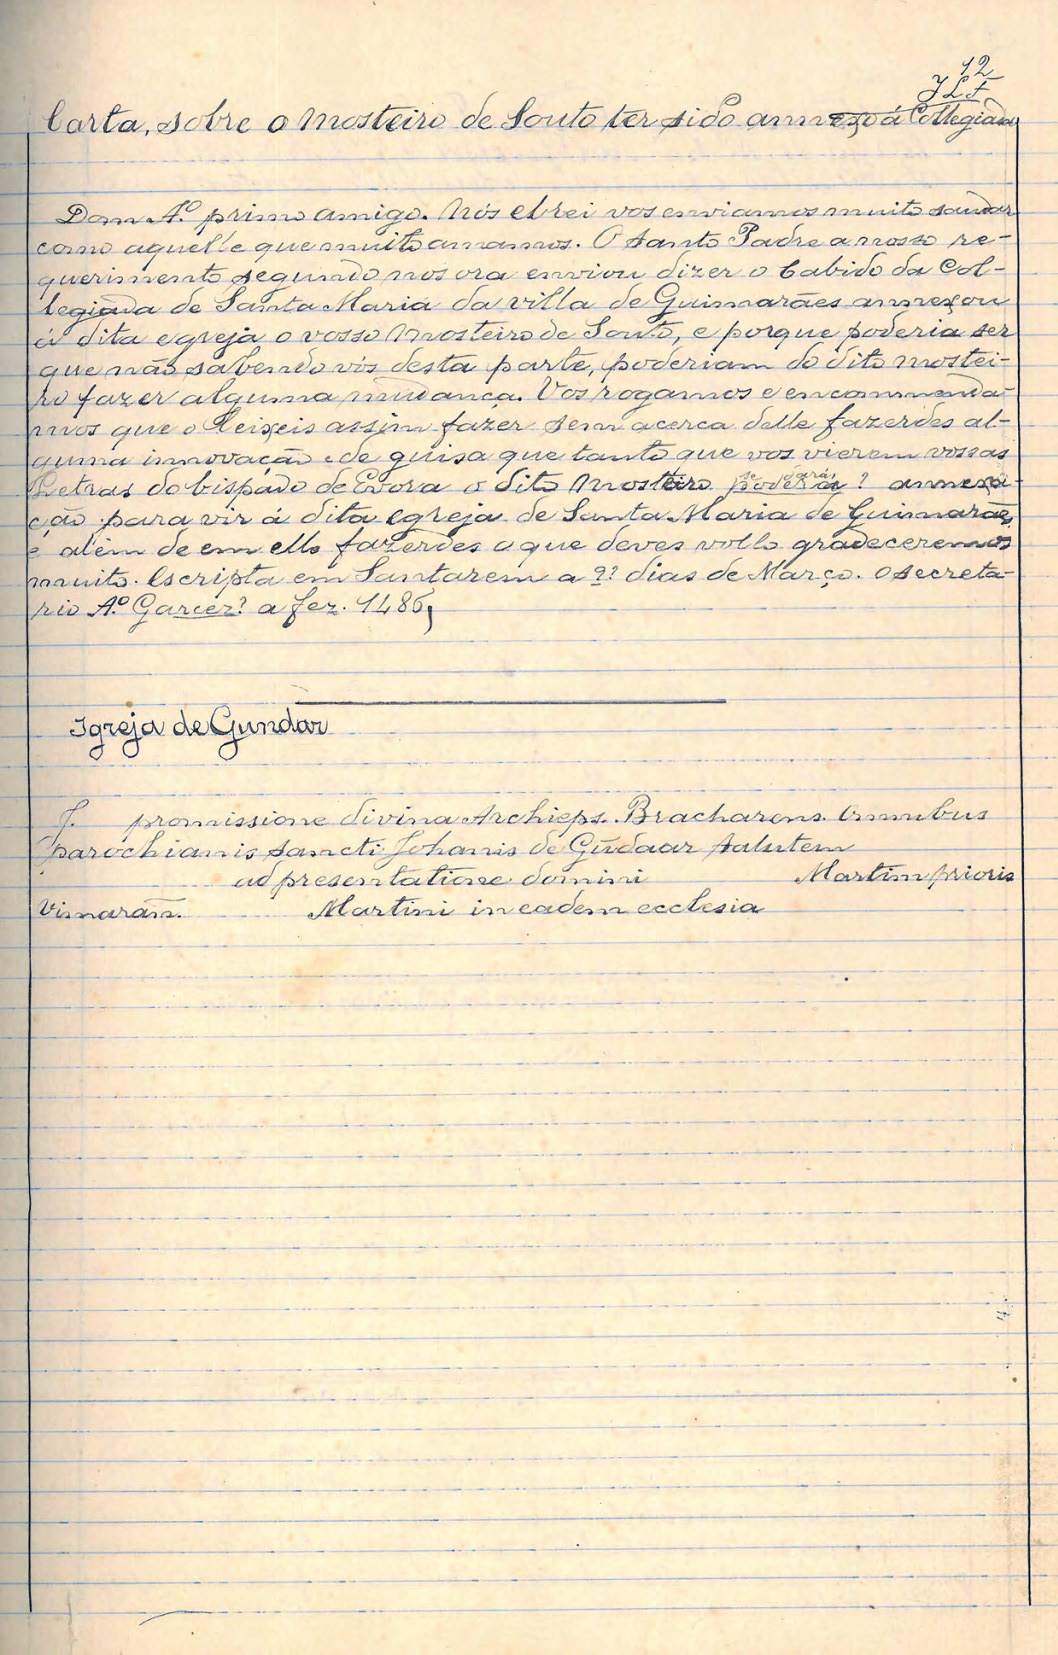 12
JLF
Carta, sobre o Mosteiro de Souto ter sido annexo á Collegiada
Dom A.º primo amigo. Nós elrei vos enviamos muito saudar
como aquelle que muito amamos. O Santo Padre a nosso re-
querimento segundo nos ora enviou dizer o Cabido da Col-
legiada de Santa Maria da villa de Guimarães annexou
á dita egreja o vosso Mosteiro de Souto, e porque poderia ser
que não sabendo vós desta parte, poderiam do dito mostei-
ro fazer alguma mudança. Vos rogamos e encommenda-
mos que o leixeis assim fazer sem acerca delle fazerdes al-
guma innovação e de guisa que tanto que vos vierem vossas
Letras do bispado de Evora o dito Mosteiro poderá ? annexa-
se ará
ção para vir á dita egreja de Santa Maria de Guimarães,
e além de em ello fazerdes o que deves vollo gradeceremos
muito. Escripta em Santarem a 9? dias de Março. O secreta-
rio A.º Garcez? a fez. 1486,
Igreja de Gundar
J. promissione divina Archieps. Bracharens. Omnibus
parochianis sancti Johanis de Gũdaar salutem
ad presentatione domini Martim prioris
Vimarañ. Martini in eadem ecclesia